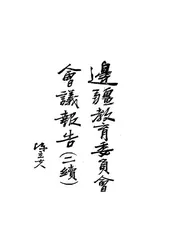 邊疆教育委員會
會議報告(二續)
陳立夫